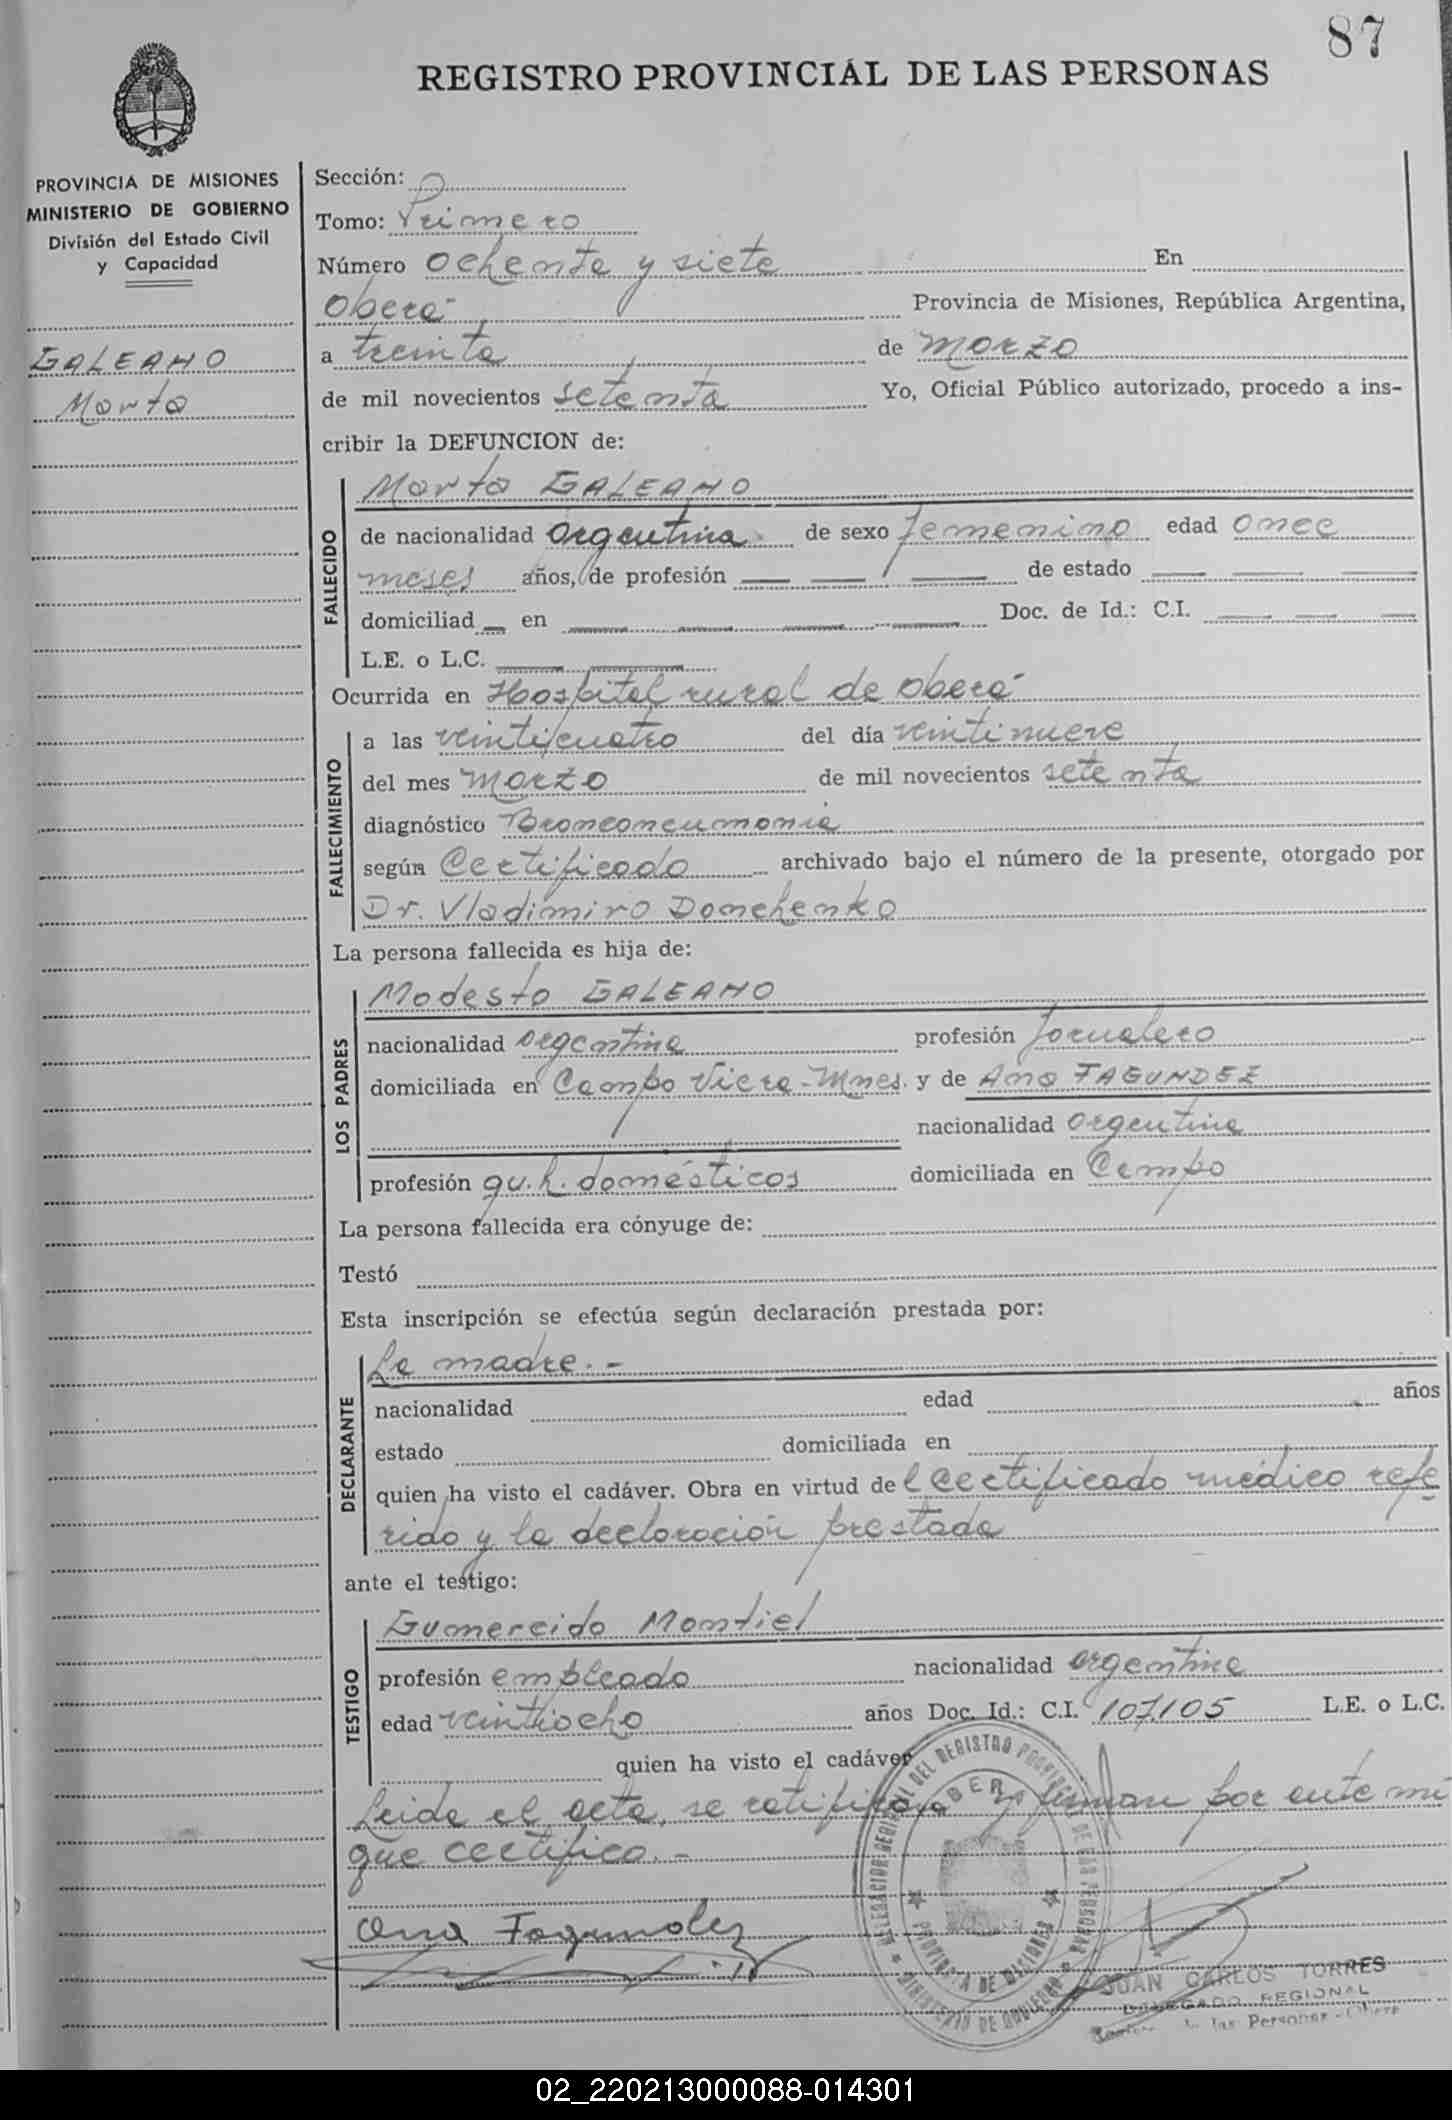 87
REGISTRO PROVINCIAL DE LAS PERSONAS
PROVINCIA DE MISIONES
MINISTERIO DE GOBIERNO
División del Estado Civil
y Capacidad
GALEANO
Marta
Sección:
Tomo: Primero
Número Ochenta y siete En
Oberá Provincia de Misiones, República Argentina,
a treinta de marzo
de mil novecientos setenta Yo, Oficial Público autorizado, procedo a ins-
cribir la DEFUNCION de:
FALLECIDO
Marta GALEANO
de nacionalidad argentina de sexo femenino edad once
meses años, de profesión — — — de estado — — —
domiciliad — en — — — — Doc. de Id.: C.I. — — —
L.E. o L.C. — —
Ocurrida en Hospital rural de Oberá
FALLECIMIENTO
a las veinticuatro del día veintinueve
del mes marzo de mil novecientos setenta
diagnóstico Bronconeumonia
según Certificado archivado bajo el número de la presente, otorgado por
Dr. Vladimiro Donchenko
La persona fallecida es hija de:
LOS PADRES
Modesto GALEANO
nacionalidad argentina profesión Jornalero
domiciliada en Campo Viera-Mnes. y de Ana FAGUNDEZ
nacionalidad argentina
profesión qu.h. domésticos domiciliada en Campo
La persona fallecida era cónyuge de:
Testó
Esta inscripción se efectúa según declaración prestada por:
DECLARANTE
La madre.-
nacionalidad edad años
estado domiciliada en
quien ha visto el cadáver. Obra en virtud del certificado médico refe
rido y la declaración prestada
ante el testigo:
TESTIGO
Gumercido Montiel
profesión empleado nacionalidad argentina
edad veintiocho años Doc. Id.: C.I. 107.105 L.E. o L.C.
quien ha visto el cadáver
Leida el acta, se ratifican y firman por ante mi
que certifico.-
Ana Fagundez
DELEGACION REGIONAL DEL REGISTRO PROVINCIAL DE LAS PERSONAS
OBERA
PROVINCIA DE MISIONES
MINISTERIO DE GOBIERNO
JUAN CARLOS TORRES
DELEGADO REGIONAL
de las Personas - Oberá
02_220213000088-014301